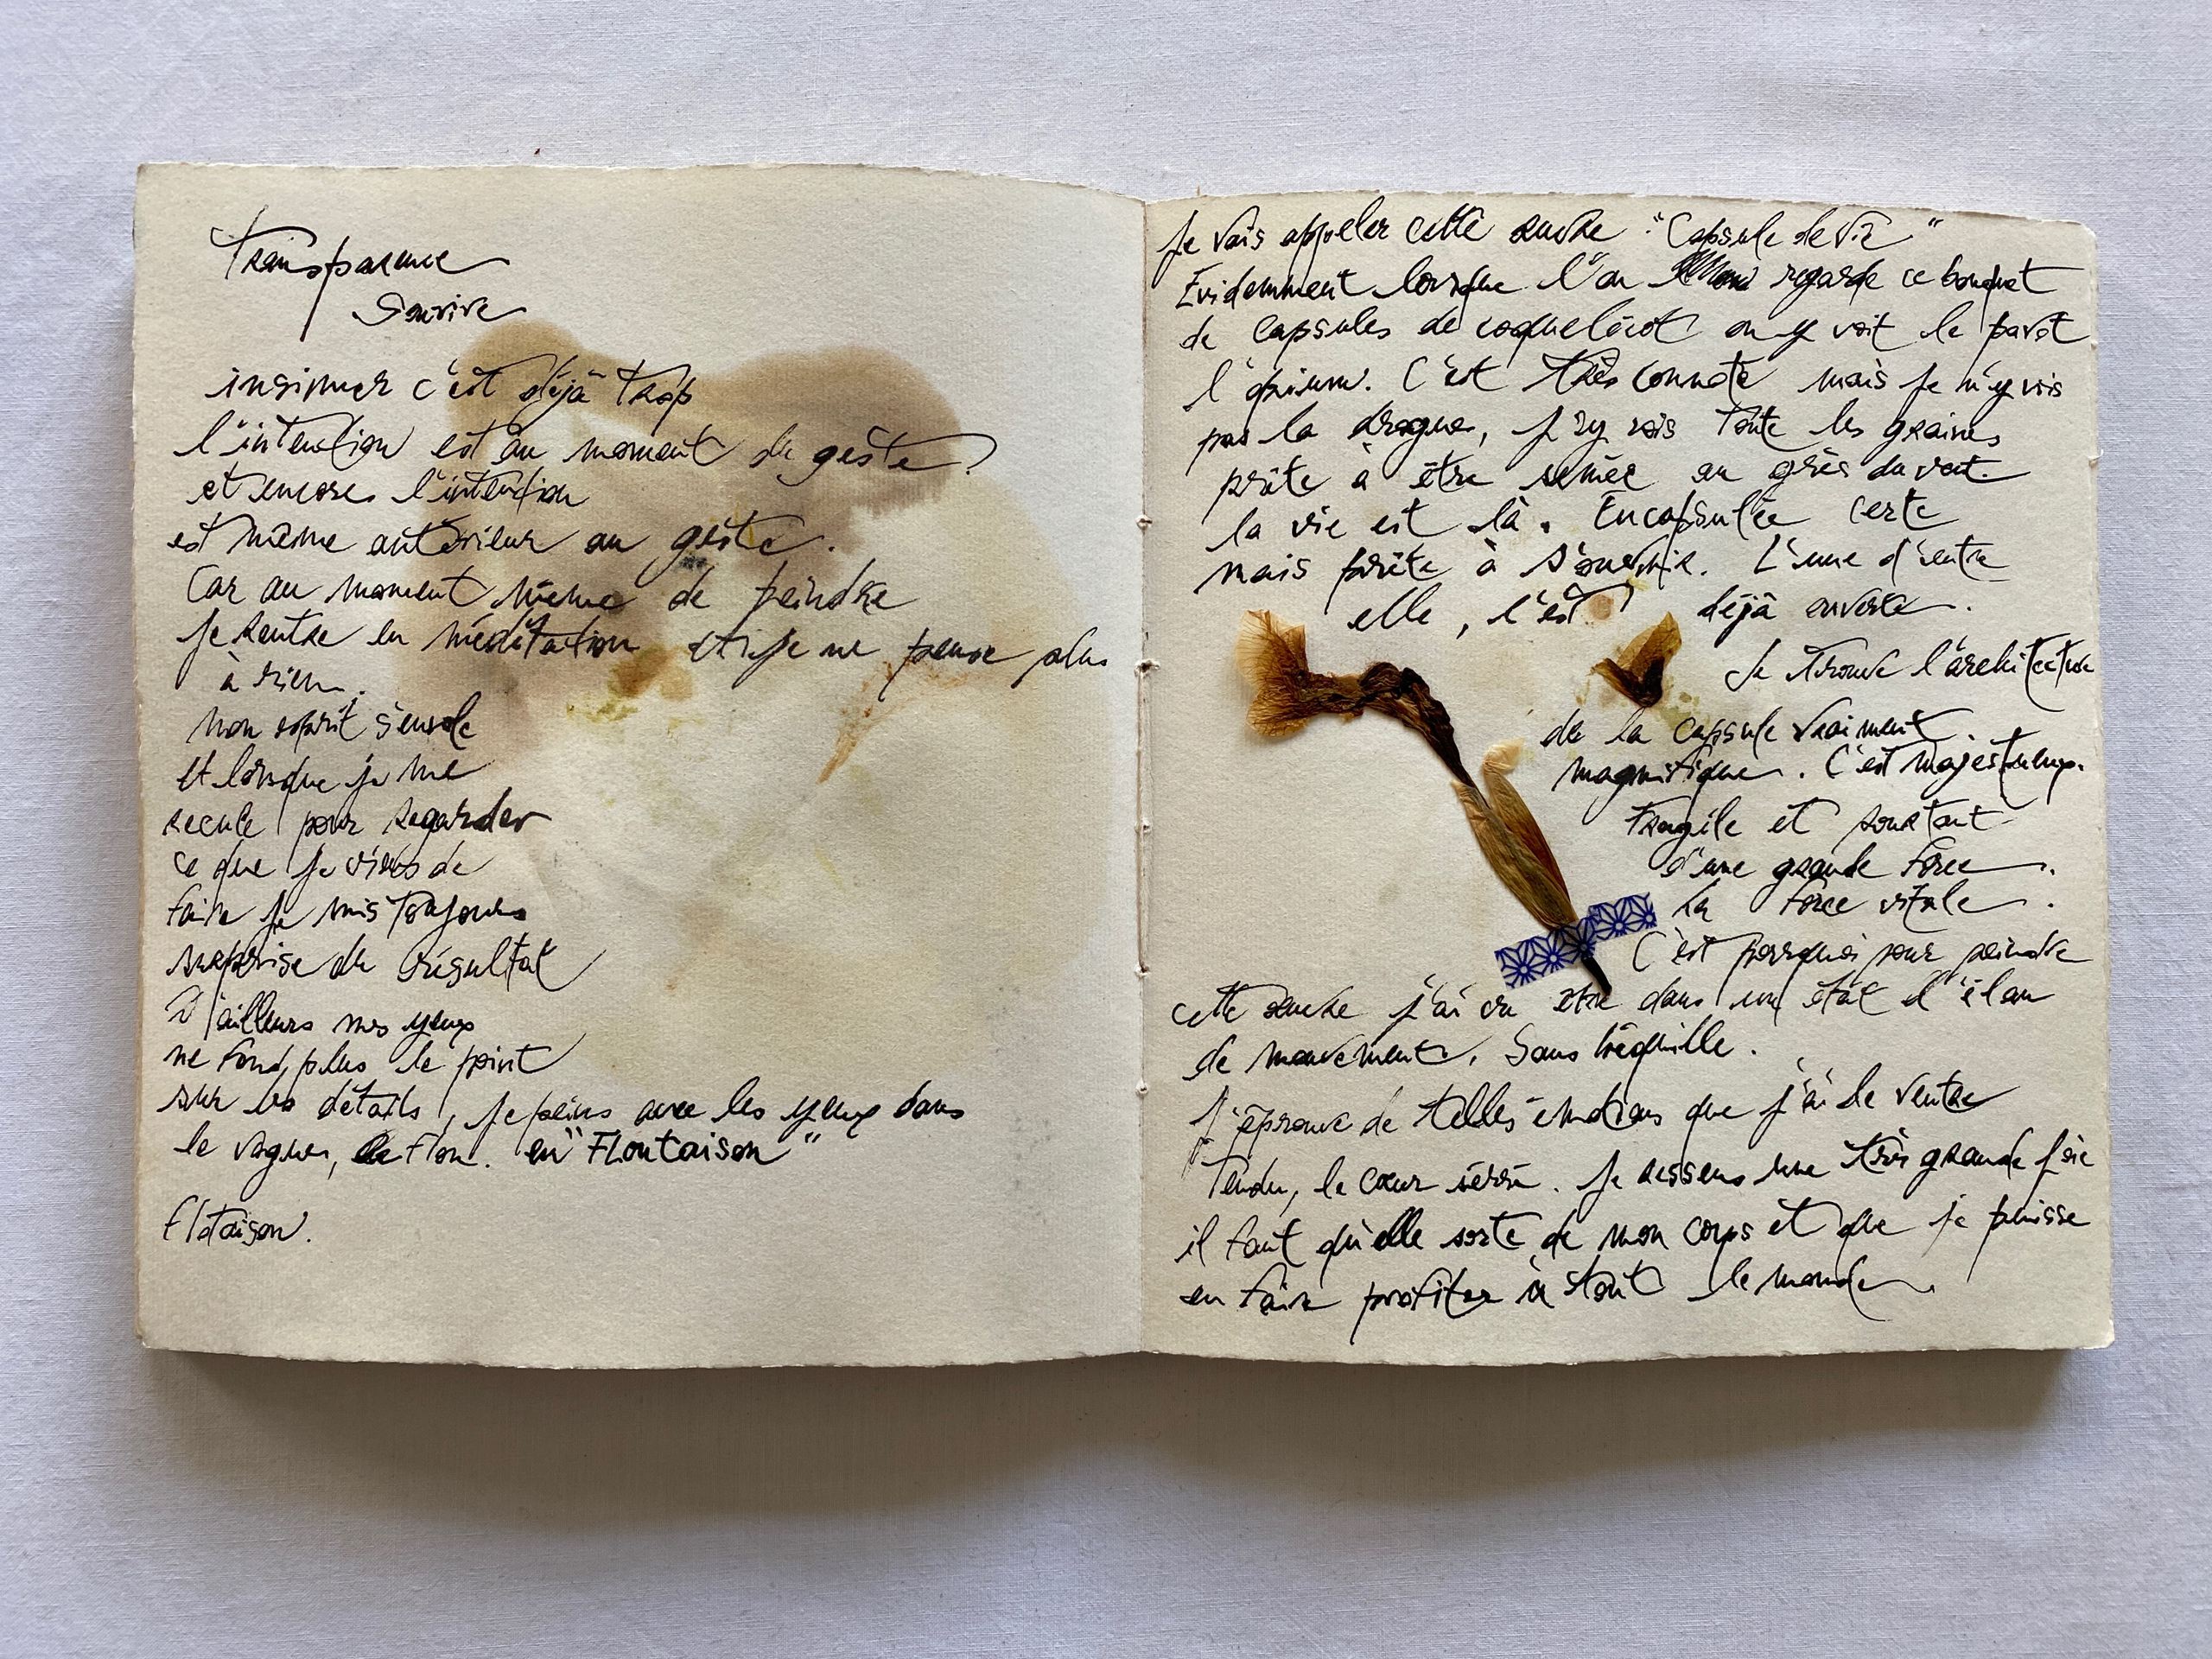 Transparence
Sourire
insinuer c'est déjà trop
l'intention est au moment du geste.
et encore l'intention
est même antérieur au geste.
Car au moment même de peindre
je rentre en méditation et je ne pense plus
à rien.
mon esprit s'envole
et lorsque je me
recule pour regarder
ce que je viens de
faire je suis toujours
surprise du résultat
D'ailleurs mes yeux
ne font plus le point
sur les détails, je peins avec les yeux dans
le vague, le flou. en "FLoutaison"
Flotaison.
Je vais appeler cette encre "Capsule de Vie"
Evidemment lorsque l'on regarde ce bouquet
de capsules de coquelicot on y voit le pavot
l'opium. C'est très connoté mais je n'y vois
pas la drogue, j'y vois toute les graines
prête à être semée au grès du vent.
la vie est là. Encapsulée certe
mais prête à s'ouvrir. L'une d'entre
elle, l'est déjà ouverte.
Je trouve l'architecture
de la capsule vraiment
magnifique. C'est majestueux.
Fragile et pourtant
d'une grande force.
La force vitale.
C'est pourquoi pour peindre
cette encre j'ai du être dans un état d'élan
de mouvement. Sans béquille.
J'éprouve de telles émotions que j'ai le ventre
Tendu, le cœur serré. Je ressens une très grande joie
il faut qu'elle sorte de mon corps et que je puisse
en faire profiter à tout le monde.